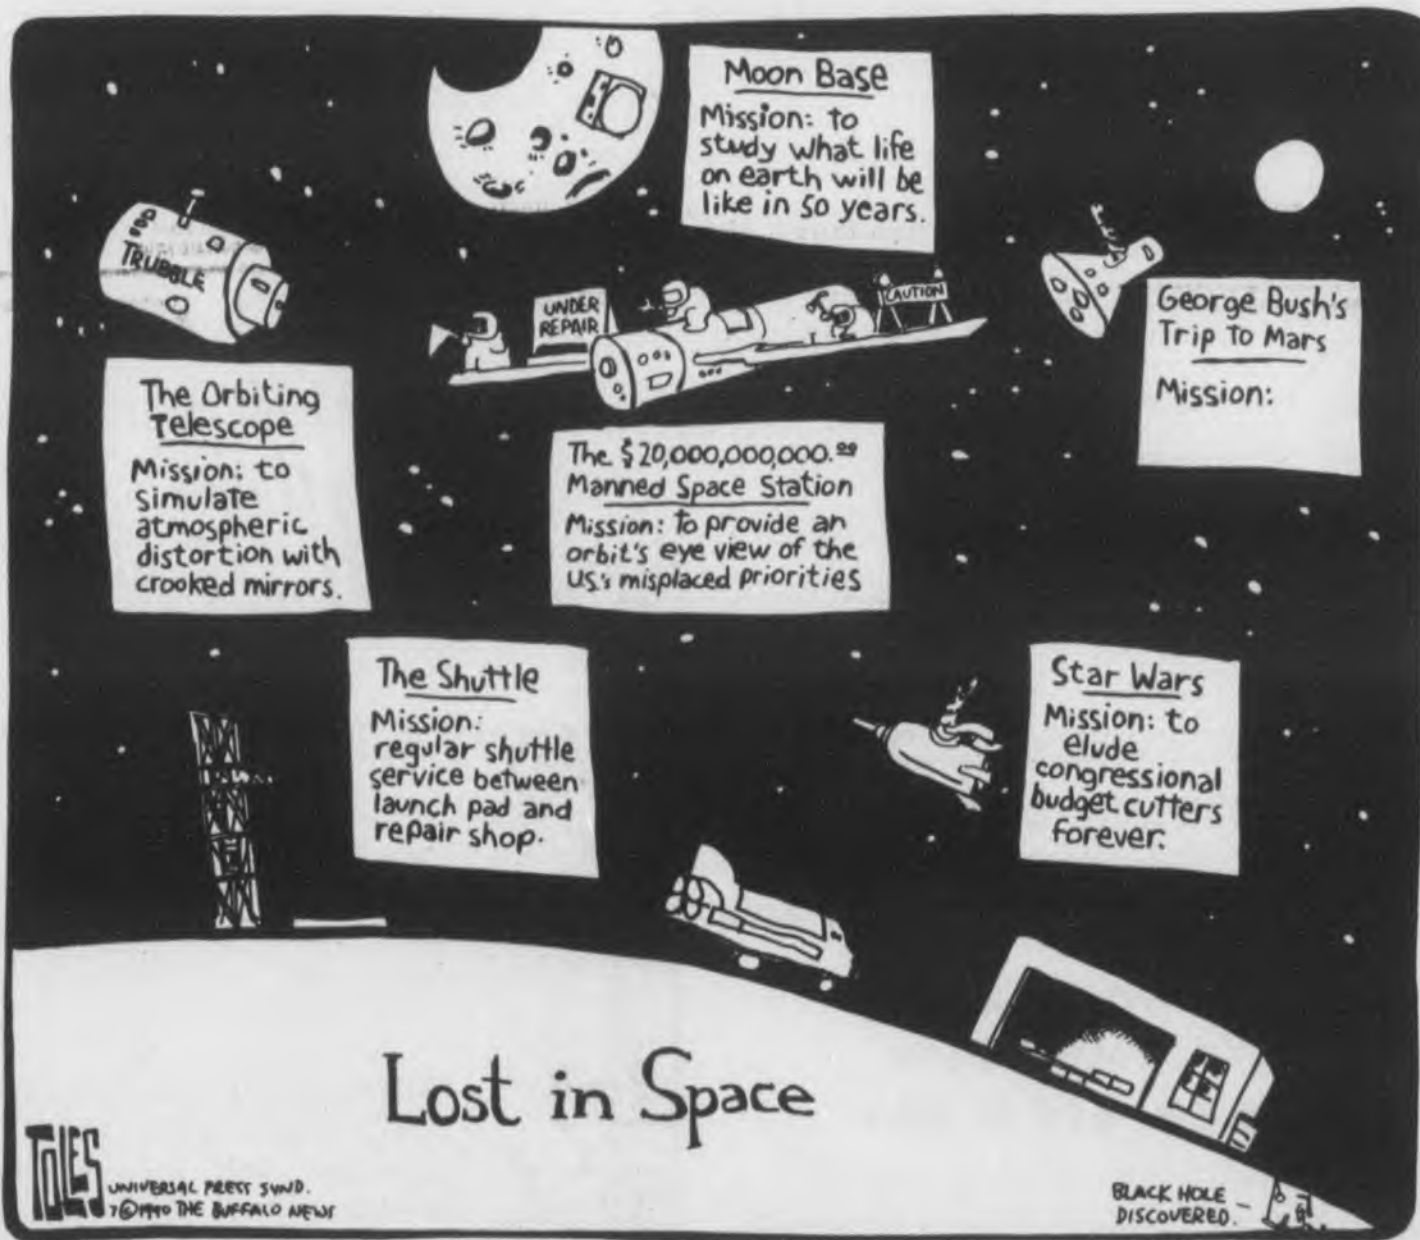 Moon Base
Mission: to
study what life
on earth will be
like in 50 years.
TRUBBLE
UNDER
REPAIR
CAUTION
George Bush's
Trip To Mars
Mission:
The Orbiting
Telescope
Mission: to
simulate
atmospheric
distortion with
crooked mirrors.
The $20,000,000,000.00
Manned Space Station
Mission: to provide an
orbit's eye view of the
US's misplaced priorities
The Shuttle
Mission:
regular shuttle
service between
launch pad and
repair shop.
Star Wars
Mission: to
elude
congressional
budget cutters
forever.
Lost in Space
TOLES
UNIVERSAL PRESS SYND.
7©1990 THE BUFFALO NEWS
BLACK HOLE
DISCOVERED.